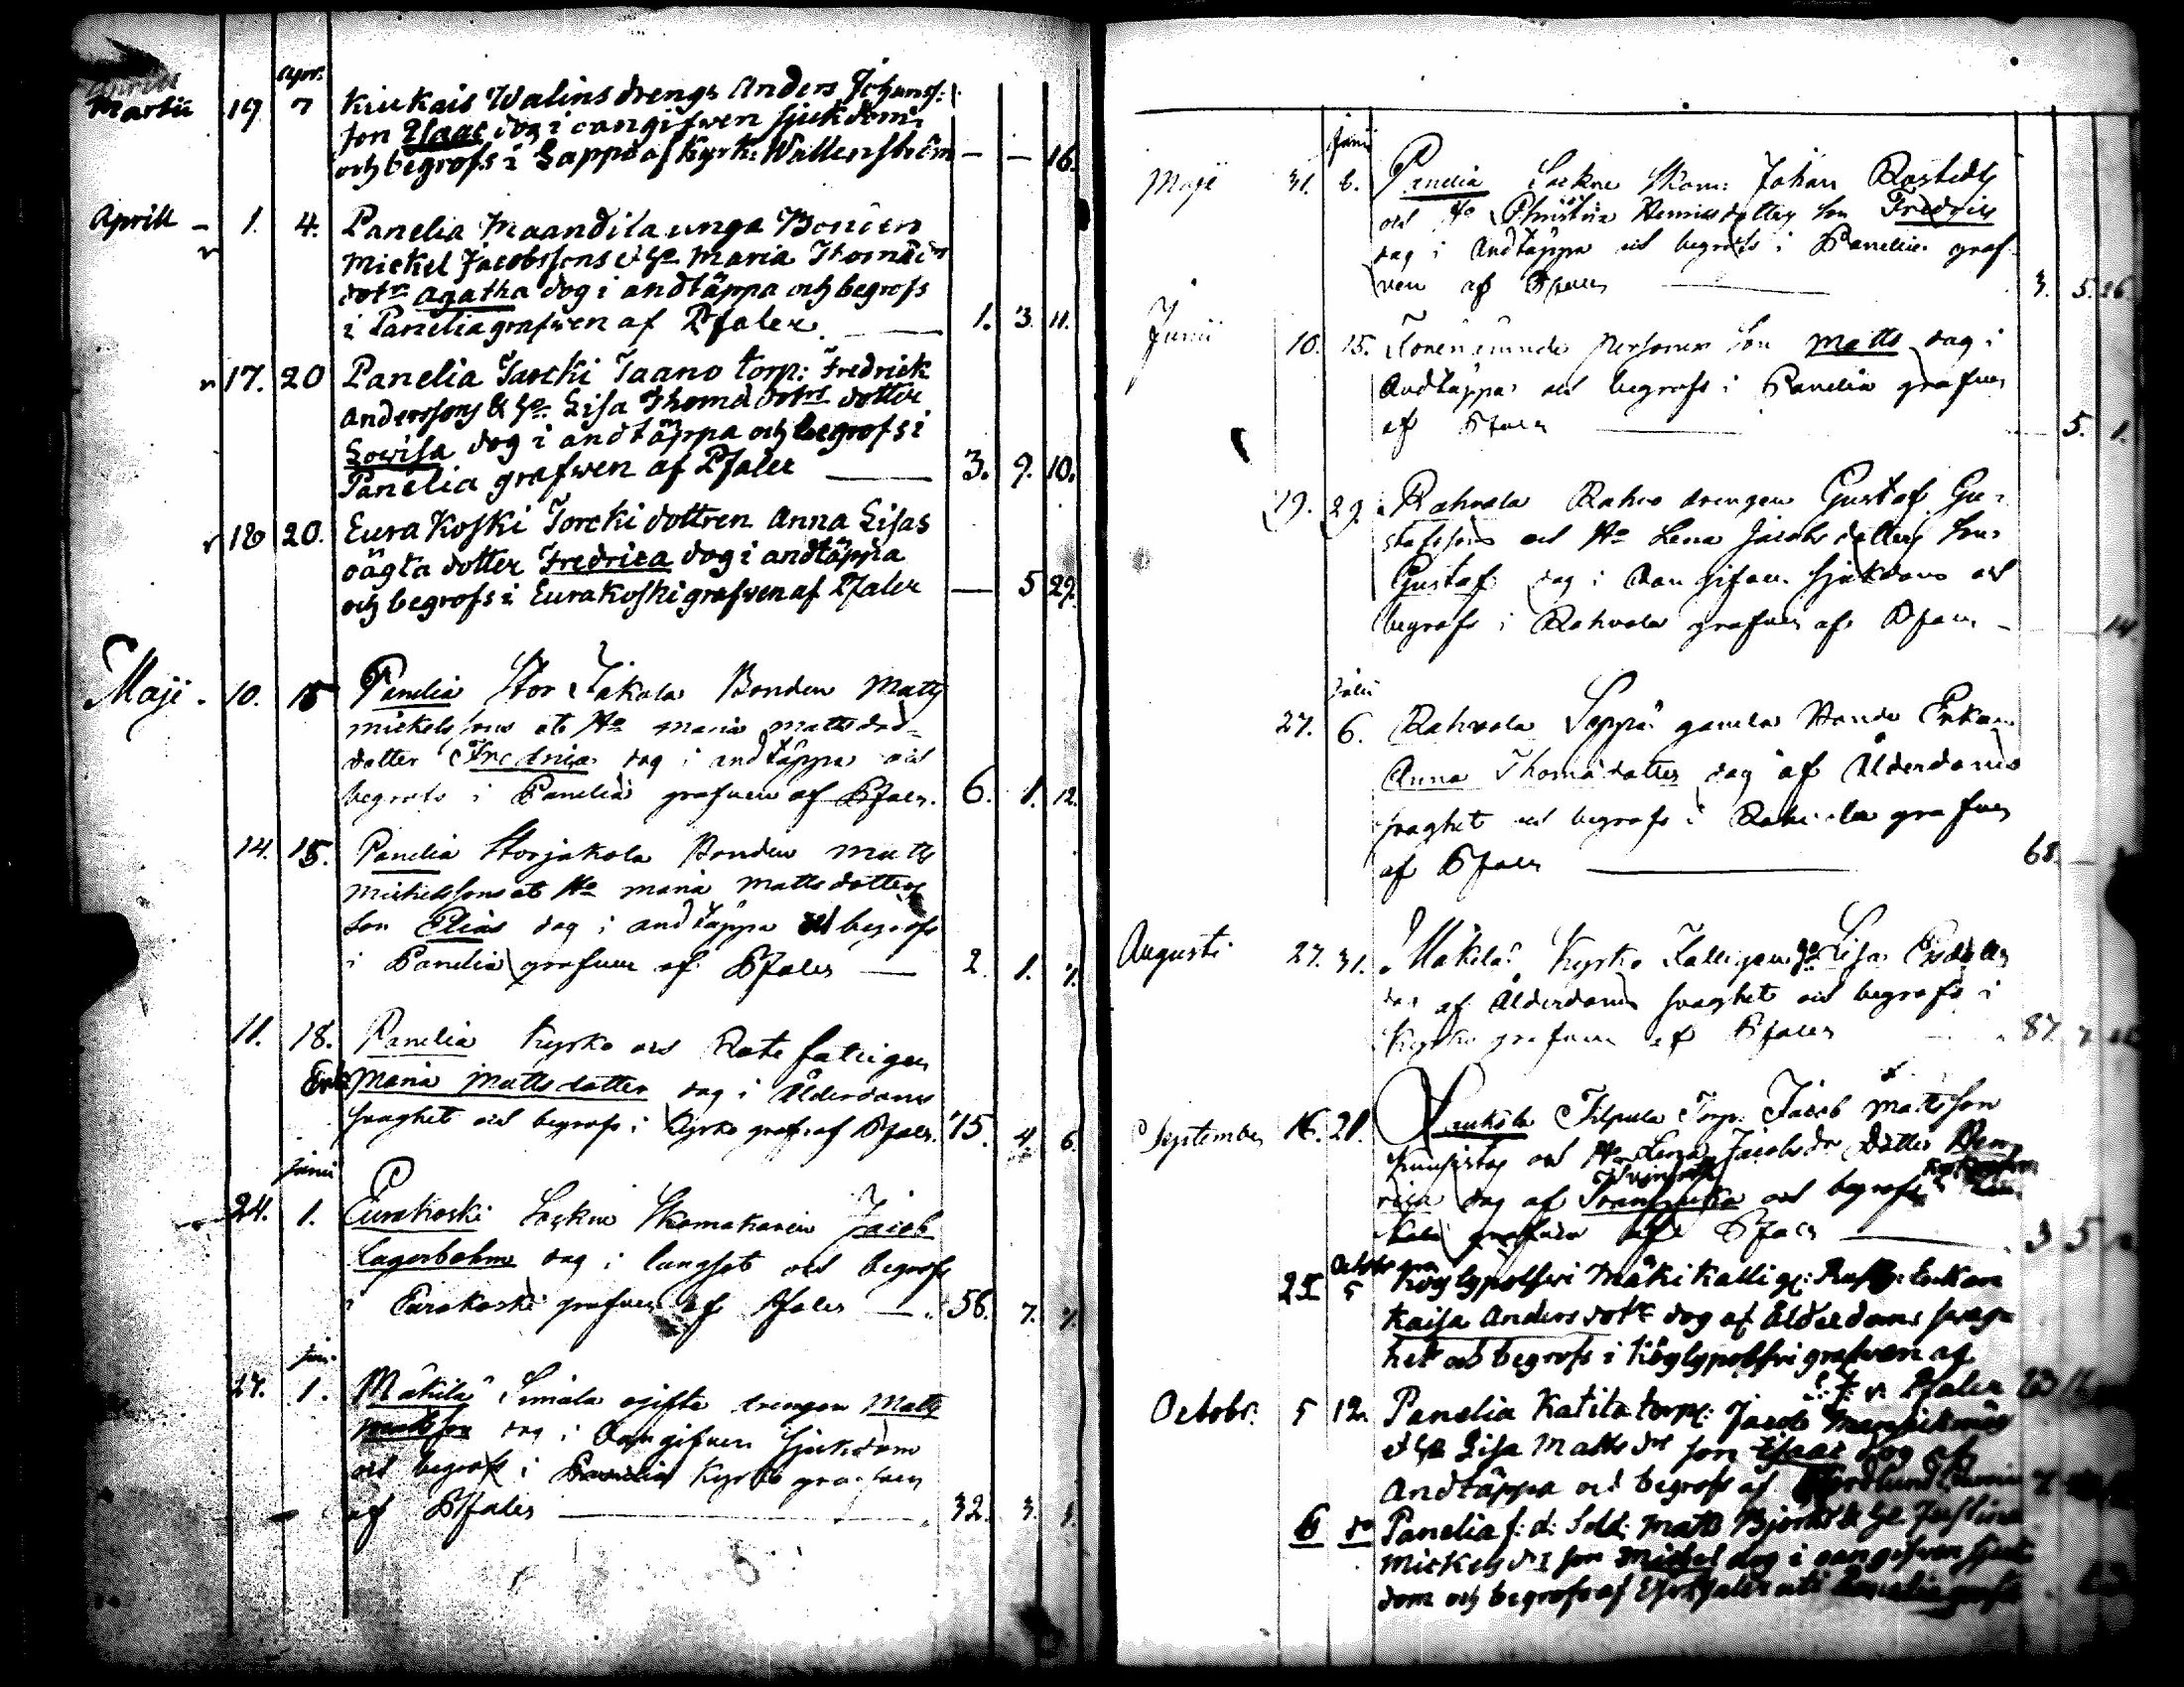 Aprill
Martii 19 7 Kiukais Walins drengs Anders Johanss:
son Isaac dog i oangifwen sjukdom
och begrofs i Lappo af Kyrk: Wallenström — — 16.
Aprill 1. 4. Panelia Maandila unga Bonden
Mickel Jacobssons et H:o Maria Thomæ
dotr Agatha dog i andtäppa och begrofs
i Panelia grafwen af Pfaler. 1. 3. 11.
17. 20 Panelia Jaacki Jaano torp: Fredrick
Anderssons & H:o Lisa Thomæ dotrs dotter
Lowisa dog i andtäppa och begrofs i
Panelia grafwen af Pfaler 3. 9. 10.
18 20. Eura Koski Torcki dottren Anna Lisas
oägta dotter Fredrica dog i andtäppa
och begrofs i Eurakoski grafwen af Pfaler — 5 29.
Maji. 10. 15 Panelia Stor Jakola Bonden Matts
Mickelssons et H:o Maria Mattsdot=
dotter Fredrica dog i andtäppa och
begrofs i Panelia grafwen af Pfaler. 6. 1. 12.
14. 15. Panelia Storjakola Bonden Matts
Mickelssons et H:o Maria Mattsdotters
Son Elias dog i andtäppa och begrofs
i Panelia grafwen af Pfaler — 2. 1. 7.
11. 18. Panelia Kyrko och Rote fattigen
Enk: Maria Mattsdotter dog i Ålderdoms
swaghet och begrofs i Kyrko graf: af Pfaler. 75. 4. 6.
Junii
24. 1. Eurakoski Sockne Skomakaren Jacob
Lagerbohm dog i lungsot och begrofs
i Eurakoski grafwen af Pfaler — 56. 7. 7.
Jun:
27. 1. Mäkilä Simula ogifte drengen Matts
Mattsson dog i Oangifwen sjukdom
och begrofs i Kyrko grafwen
af Pfaler 32. 3.
Junii
Maji 31. 6. Panelia Sockne Skom: Johan Rostedts
och H:o Christina Henricsdotters Son Fredric
dog i Andtäppa och begrofs i Panelia graf-
wen af Pfaler 3. 5. 26.
Junii 10. 15. Förenämnde Personers Son Matts dog i
Andtäppa och begrofs i Panelia grafwen
af Pfaler 5. 1.
19. 29. Rahvola Rahvo drengen Gustaf Gu=
stafssons och H:o Lena Jacobsdotters Son
Gustaf dog i Oangifwen Sjukdom och
begrofs i Rahvola grafwen af Pfaler — 14.
Julii
27. 6. Rahvola Seppä gamla Bonde Enkan
Anna Thomædotter dog af Ålderdoms
swaghet och begrofs i Rahvola grafwen
af Pfaler 68. —
Augusti 27. 31. Mäkilä Kyrko Fattigen H:o Lisa
dog af Ålderdoms swaghet och begrofs i
Kyrko grafwen af Pfaler 87. 7
September 16. 21. Filpula Torp: Jacob Mattsson
och H:o Lena Jacobsdr Dotter Hen
rica dog af och begrofs
grafwen af Pfaler 3 5
Octobr
25 5 Köylypolfwi Mäki Kalli gl: Rusth: Enkan
Kaisa Anders dotr dog af Ålderdoms swag=
het och begrofs i Köylypolfwi grafwen af
Pfaler
Octobr. 5 12. Panelia Katila torp: Jacob
et H:o Lisa Matts dr son Isaac dog af
Andtäppa och begrofs af
6 do Panelia f: d: Sold: Matts Björks & H:o Justina
Mickels dr son Michel dog i oangifwen sjuk
dom och begrofs af Pfaler uti Panelia grafw